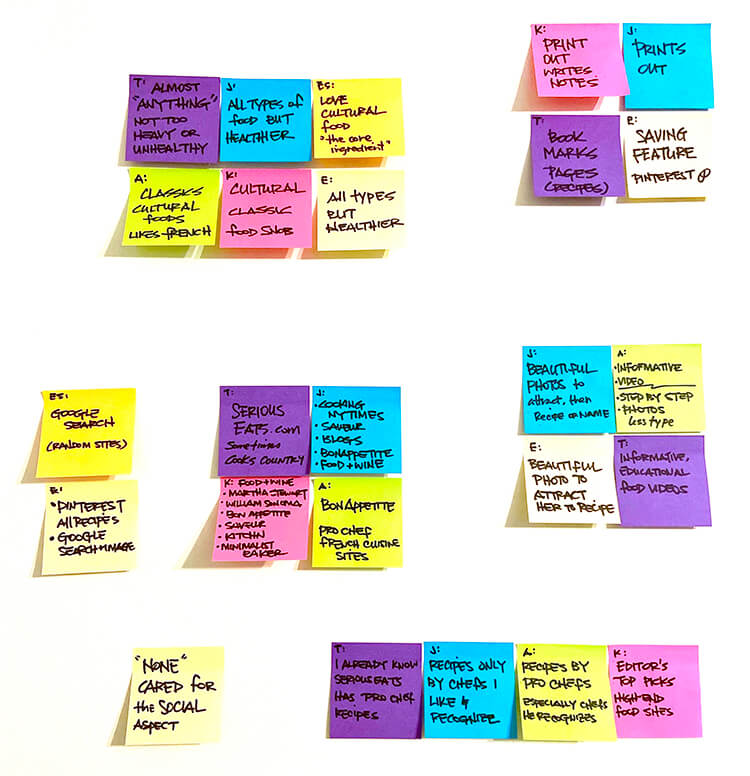 T: ALMOST
"ANYTHING"
NOT TOO
HEAVY OR
UNHEALTHY
J:
ALL TYPES of
food BUT
HEALTHIER
ES:
LOVE
CULTURAL
food
"the core
ingredient"
A:
CLASSICS
CULTURAL
foods
LIKES FRENCH
K:
CULTURAL
CLASSIC
food SNOB
E:
All types
BUT
HEALTHIER
K:
PRINT
OUT
WRITES
NOTES
J:
PRINTS
OUT
T:
BOOK
MARKS
PAGES
(RECIPES)
E:
SAVING
FEATURE
PINTEREST
ES:
GOOGLE
SEARCH
(RANDOM SITES)
E:
• PINTEREST
All RECIPES
• GOOGLE
SEARCH+IMAGE
T:
SERIOUS
EATS.com
Sometimes
COOK'S COUNTRY
J:
• COOKING
NYTIMES
• SAVEUR
• BLOGS
• BONAPPETITE
• FOOD+WINE
K: FOOD+WINE
• MARTHA STEWART
• WILLIAM SONOMA
• BON APPETITE
• SAVEUR
• KITCHN
• MINIMALIST
BAKER
A:
BON APPETTE
PRO CHEF
FRENCH CUISINE
SITES
J:
BEAUTIFUL
PHOTOS to
attract, then
RECIPE or NAME
A:
• INFORMATIVE
• VIDEO
• STEP BY STEP
• PHOTOS
less type
E:
BEAUTIFUL
PHOTO TO
ATTRACT
HER to RECIPE
T:
INFORMATIVE,
EDUCATIONAL
food VIDEOS
"NONE"
CARED for
the SOCIAL
ASPECT
T:
I ALREADY KNOW
SERIOUSEATS
HAS PRO CHEF
RECIPES
J:
RECIPES ONLY
BY CHEFS I
LIKE &
RECOGNIZE
A:
RECIPES BY
PRO CHEFS
ESPECIALLY CHEFS
HE RECOGNIZES
K:
EDITOR'S
TOP PICKS
HIGH-END
food SITES